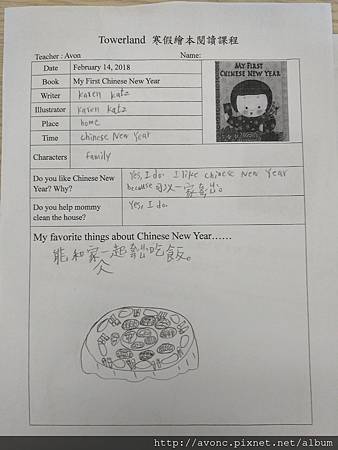 Towerland 寒假繪本閱讀課程
Teacher : Avon Name:
Date February 14, 2018
Book My First Chinese New Year
MY FIRST
CHINESE NEW YEAR
Writer karen katz
Illustrator karen katz
Place home
Time chinese New Year
Characters family
Do you like Chinese New Year? Why?
Yes, I do. I like chinese New Year
because 可以一家
Do you help mommy clean the house?
Yes, I do.
My favorite things about Chinese New Year……
能和家一起 吃飯。
人
http://avonc.pixnet.net/album